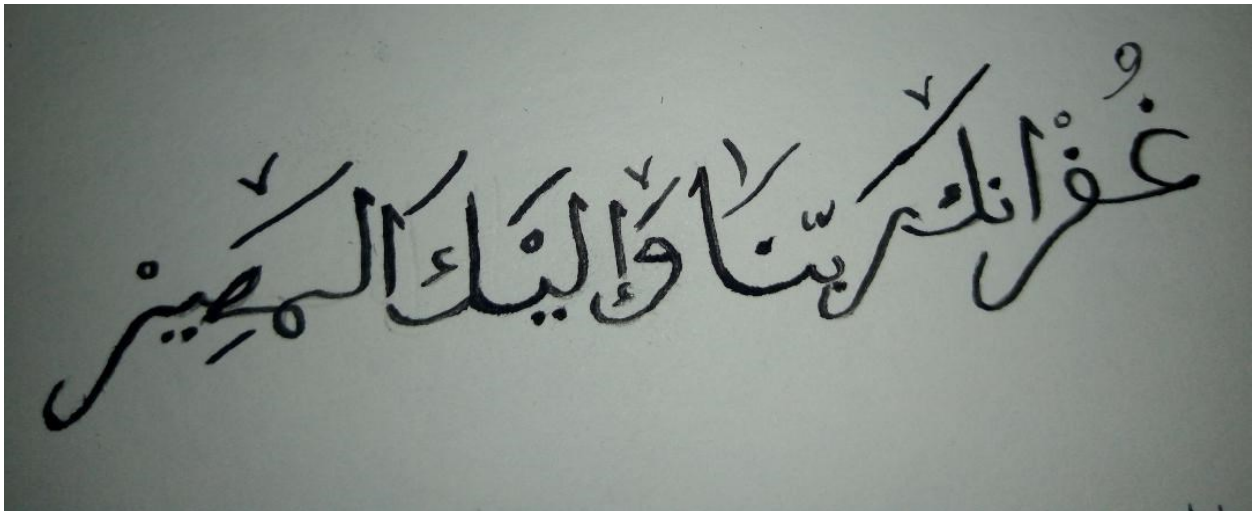 غُفْرَانَكَ رَبَّنَا وَإِلَيْكَ الْمَصِيرْ